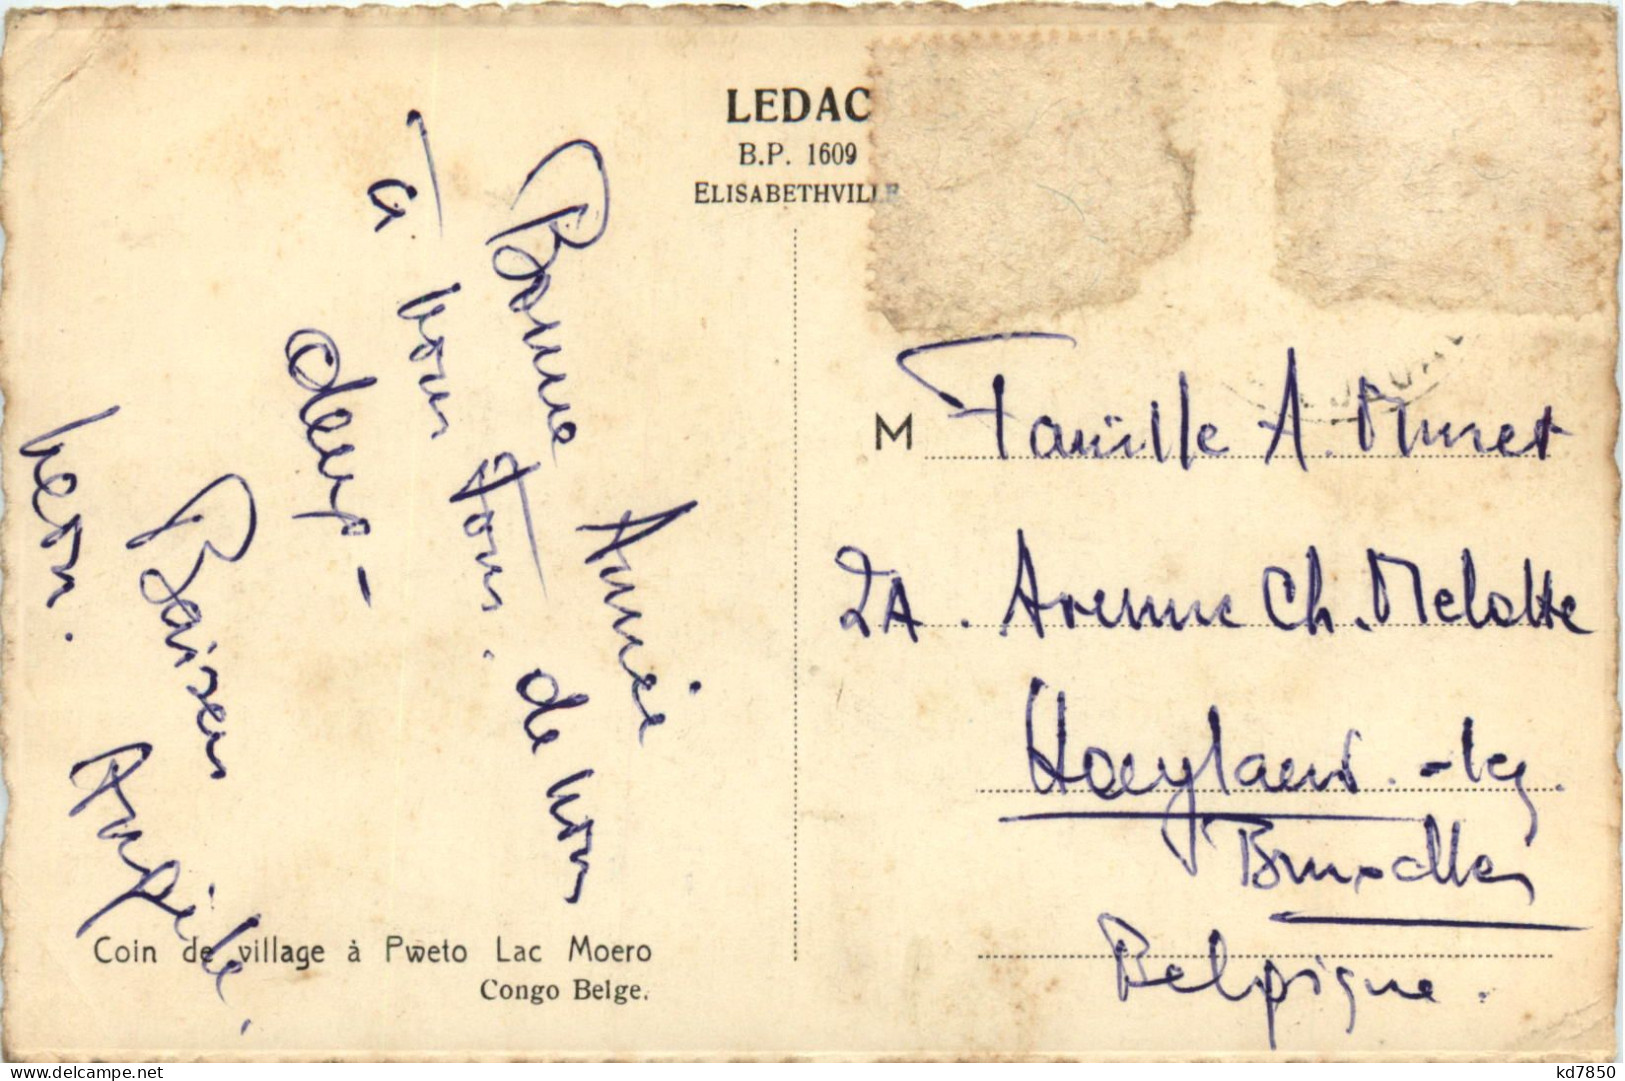 LEDAC
B.P. 1609
ELISABETHVILLE
Bonne Année
à vous tous. de nous
deux -
Baisers
Léon.
Coin de village à Pweto Lac Moero
Congo Belge.
M Famille A. Muret
2A. Avenue Ch. Melotte
Hoeylaert. -lez
Bruxelles
Belgique.
kd7850